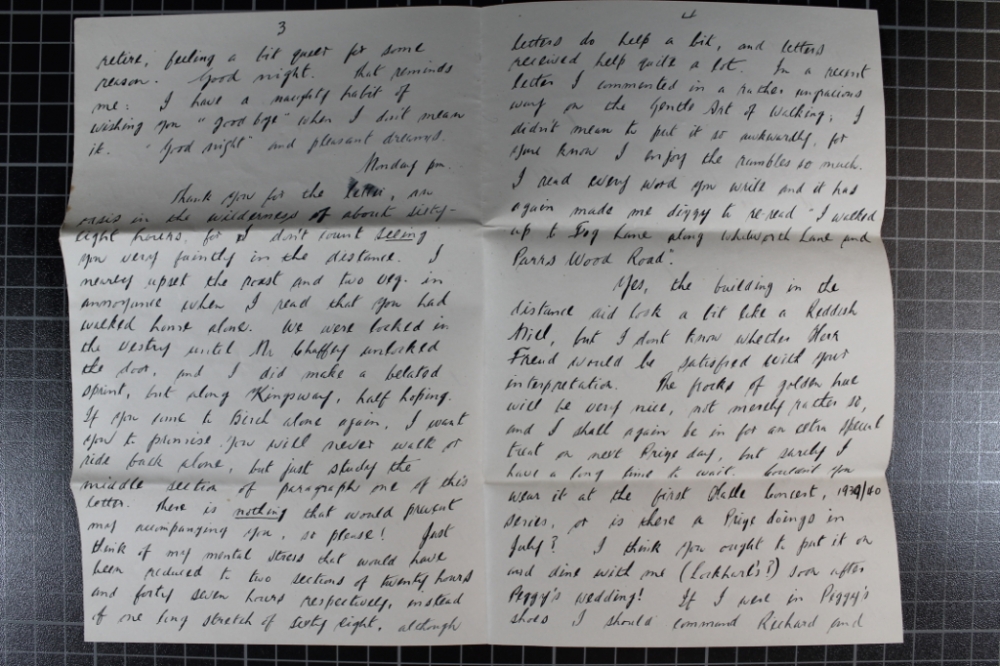 3
retire, feeling a bit queer for some
reason. Good night. That reminds
me: I have a naughty habit of
wishing you "good bye" when I don't mean
it. "Good night" and pleasant dreams.
Monday pm.
Thank you for the letter, an
oasis in the wilderness of about sixty-
eight hours, for I don't count seeing
you very faintly in the distance. I
nearly upset the roast and two veg. in
annoyance when I read that you had
walked home alone. We were locked in
the vestry until Mr Chaffey unlocked
the door, and I did make a belated
sprint, but along Kingsway, half hoping.
If you come to Birch alone again, I want
you to promise you will never walk or
ride back alone, but just study the
middle section of paragraph one of this
letter. There is nothing that would prevent
my accompanying you, so please! Just
think of my mental stress that would have
been reduced to two sections of twenty hours
and forty seven hours respectively, instead
of one long stretch of sixty eight, although
4
letters do help a bit, and letters
received help quite a lot. In a recent
letter I commented in a rather ungracious
way on the Gentle Art of Walking; I
didn't mean to put it so awkwardly, for
you know I enjoy the rambles so much.
I read every word you write and it has
again made me dizzy to re-read "I walked
up to Fog Lane along Whitworth Lane and
Parrs Wood Road".
Yes, the building in the
distance did look a bit like a Reddish
Mill, but I don't know whether Herr
Freud would be satisfied with your
interpretation. The frocks of golden hue
will be very nice, not merely rather so,
and I shall again be in for an extra special
treat on next Prize day, but surely I
have a long time to wait. Couldn't you
wear it at the first Halle Concert, 1939/40
series, or is there a Prize doings in
July? I think you ought to put it on
and dine with me (Lockhart's?) soon after
Peggy's wedding! If I were in Peggy's
shoes I should command Richard and